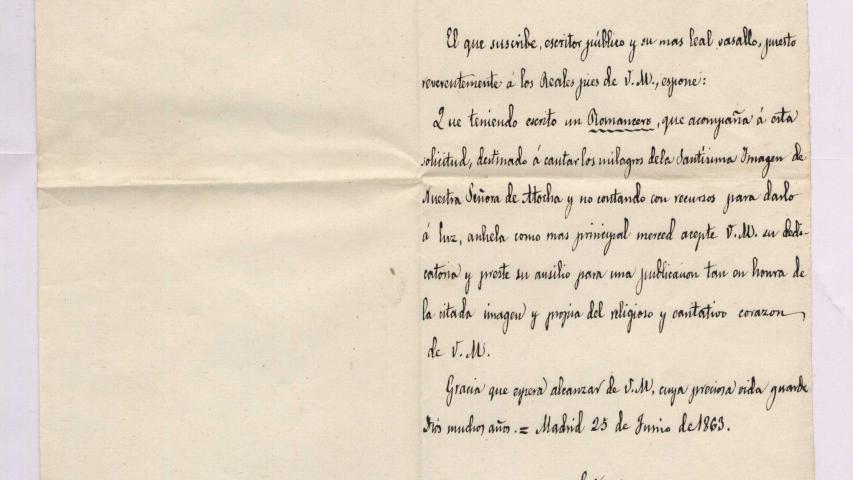 El que suscribe, escritor público y su mas leal vasallo, puesto
reverentemente á los Reales pies de V.M., espone:
Que teniendo escrito un Romancero, que acompaña á esta
solicitud, destinado á cantar los milagros de la Santísima Imagen de
Nuestra Señora de Atocha y no contando con recursos para darlo
á luz, anhela como mas principal merced acepte V.M. su dedi-
catoria y preste su ausilio para una publicacion tan en honra de
la citada imagen y propia del religioso y caritativo corazon
de V.M.
Gracia que espera alcanzar de V.M, cuya preciosa vida guarde
Dios muchos años. = Madrid 25 de Junio de 1863.